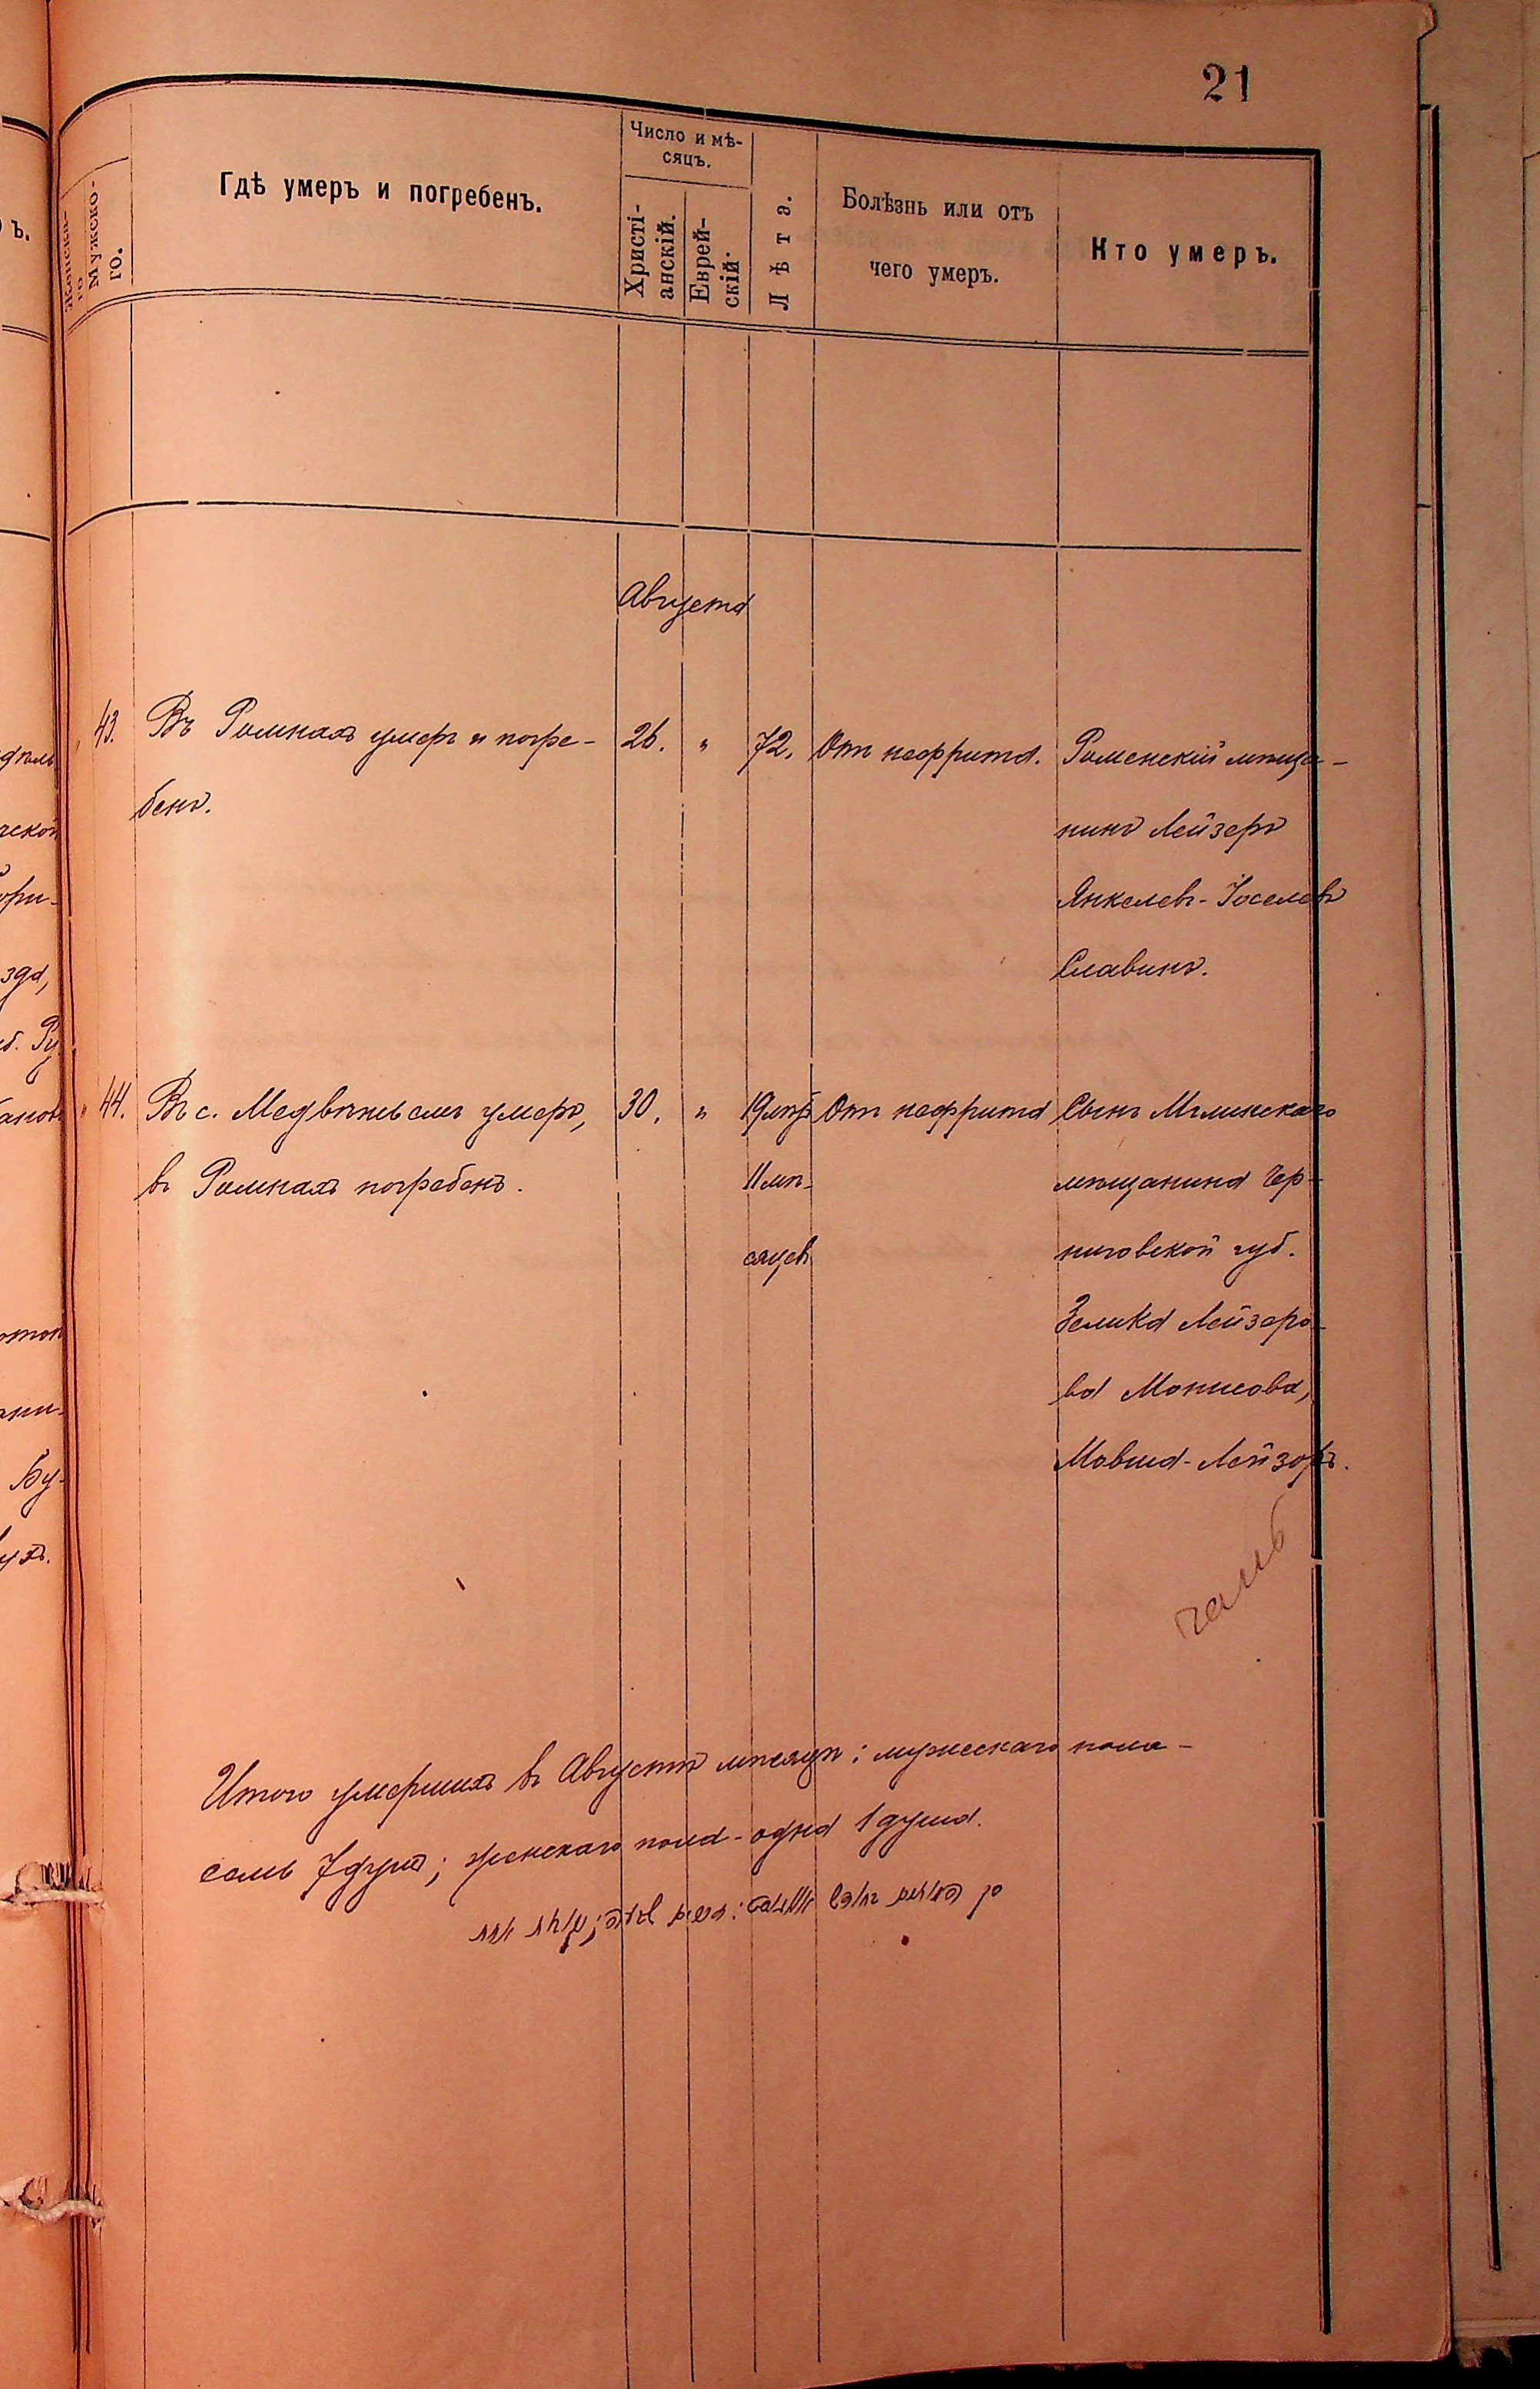 21
Женска-
го
Мужско-
го.
Гдѣ умеръ и погребенъ.
Число и мѣ-
сяцъ.
Христі-
анскій.
Еврей-
скій.
Лѣта.
Болѣзнь или отъ
чего умеръ.
Кто умеръ.
Августа
" 43. Въ Ромнахъ умеръ и погре- 26. " 72. Отъ нефрита. Роменскій мѣща-
бенъ. нинъ Лейзеръ
Янкелевъ-Іоселевъ
Славинъ.
" 44. Въ с. умеръ, 30. " 19 лѣтъ Отъ нефрита Сынъ Мглинскаго
въ Ромнахъ погребенъ. 11 мѣ- мѣщанина Чер-
сяцевъ ниговской губ.
Зелика Лейзеро-
ва Монисова,
Мовша-Лейзоръ.
Итого умершихъ въ Августѣ мѣсяцѣ: мужескаго пола-
семь 7 душъ; женскаго пола-одна 1 душа.